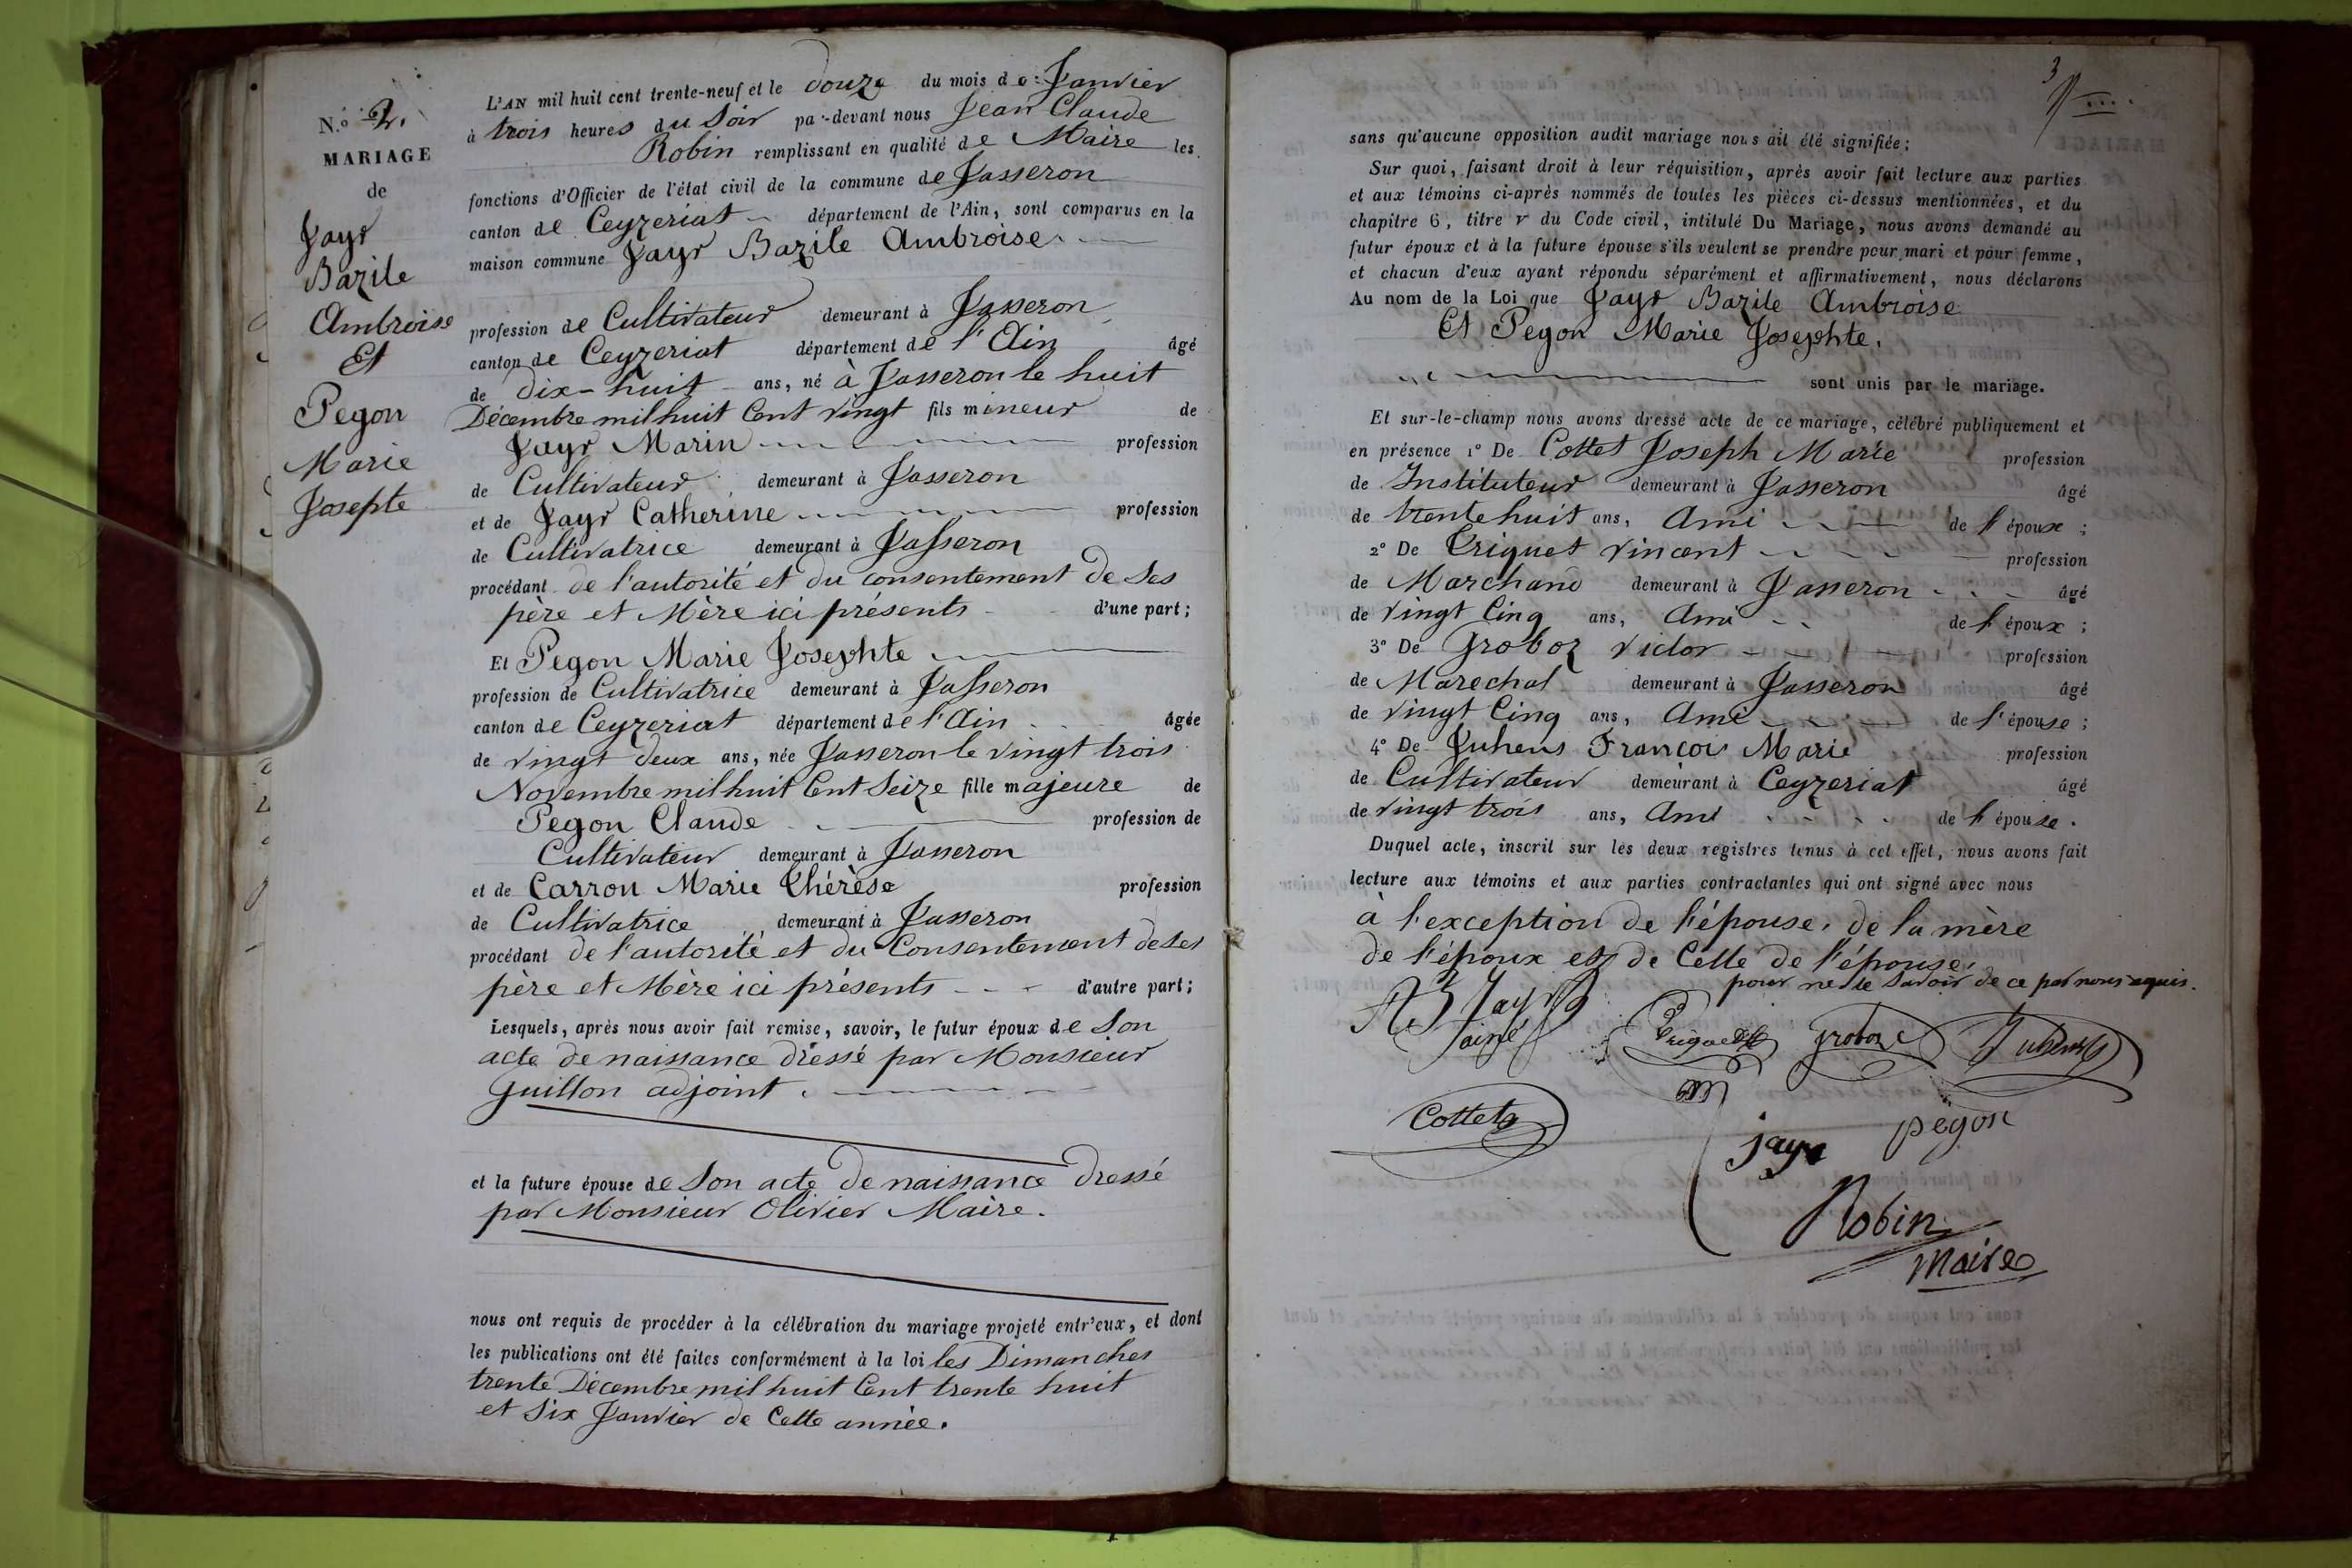 N.º 2.
MARIAGE
de
Jayr
Bazile
Ambroise
Et
Pegon
Marie
Josepte
L'AN mil huit cent trente-neuf et le douze du mois de Janvier
à trois heures du Soir par-devant nous Jean Claude
Robin remplissant en qualité de Maire les
fonctions d'Officier de l'état civil de la commune de Jasseron
canton de Ceyzeriat département de l'Ain, sont comparus en la
maison commune Jayr Bazile Ambroise
profession de Cultivateur demeurant à Jasseron
canton de Ceyzeriat département de l'Ain âgé
de dix-huit ans, né à Jasseron le huit
Décembre mil huit Cent vingt fils mineur de
Jayr Marin profession
de Cultivateur demeurant à Jasseron
et de Jayr Catherine profession
de Cultivatrice demeurant à Jasseron
procédant de l'autorité et du consentement de Ses
père et Mère ici présents d'une part;
Et Pegon Marie Josephte
profession de Cultivatrice demeurant à Jasseron
canton de Ceyzeriat département de l'Ain âgée
de vingt deux ans, née Jasseron le vingt trois
Novembre mil huit Cent Seize fille majeure de
Pegon Claude profession de
Cultivateur demeurant à Jasseron
et de Carron Marie Thérèse profession
de Cultivatrice demeurant à Jasseron
procédant de l'autorité et du Consentement de Ses
père et Mère ici présents d'autre part;
Lesquels, après nous avoir fait remise, savoir, le futur époux de Son
acte de naissance dressé par Monsieur
Guillon adjoint.
et la future épouse de Son acte de naissance dressé
par Monsieur Olivier Maire.
nous ont requis de procéder à la célébration du mariage projeté entr'eux, et dont
les publications ont été faites conformément à la loi les Dimanches
trente Décembre mil huit Cent trente huit
et Six Janvier de Cette année.
3
sans qu'aucune opposition audit mariage nous ait été signifiée;
Sur quoi, faisant droit à leur réquisition, après avoir fait lecture aux parties
et aux témoins ci-après nommés de toutes les pièces ci-dessus mentionnées, et du
chapitre 6, titre v du Code civil, intitulé Du Mariage, nous avons demandé au
futur époux et à la future épouse s'ils veulent se prendre pour mari et pour femme,
et chacun d'eux ayant répondu séparément et affirmativement, nous déclarons
Au nom de la Loi que Jayr Bazile Ambroise
Et Pegon Marie Josephte.
sont unis par le mariage.
Et sur-le-champ nous avons dressé acte de ce mariage, célébré publiquement et
en présence 1º De Cottet Joseph Marie profession
de Instituteur demeurant à Jasseron âgé
de trente huit ans, Ami de l'époux;
2º De Triquet Vincent profession
de Marchand demeurant à Jasseron âgé
de vingt Cinq ans, Ami de l'époux;
3º De Groboz Victor profession
de Marechal demeurant à Jasseron âgé
de vingt Cinq ans, Ami de l'épouse;
4º De Juhens François Marie profession
de Cultivateur demeurant à Ceyzeriat âgé
de vingt trois ans, Ami de l'épouse.
Duquel acte, inscrit sur les deux registres tenus à cet effet, nous avons fait
lecture aux témoins et aux parties contractantes qui ont signé avec nous
à l'exception de l'épouse, de la mère
de l'époux et de Celle de l'épouse,
pour ne le Savoir de ce par nous requis.
Jayr
l'ainé
Triquet Groboz Juhens
Cottet
jayr pégon
Robin
Maire